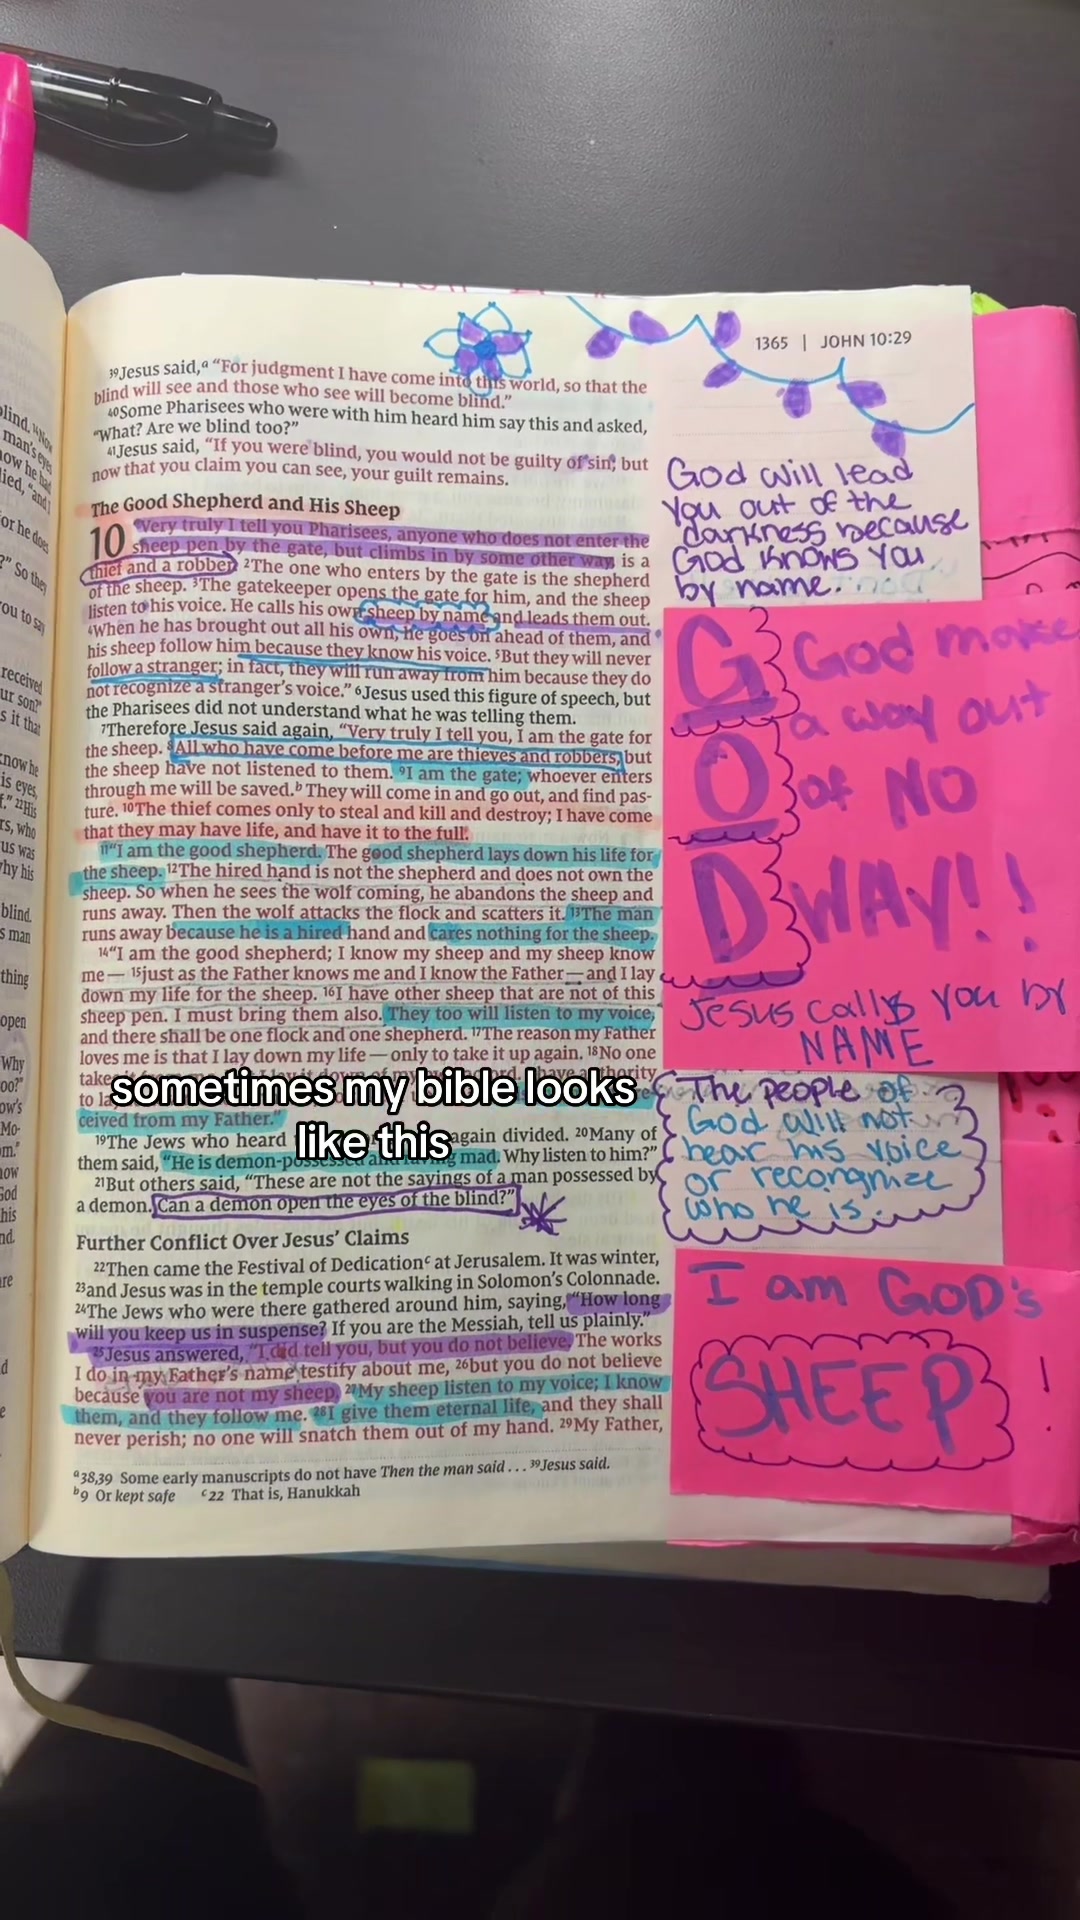 1365 | JOHN 10:29
39Jesus said,a “For judgment I have come into this world, so that the
blind will see and those who see will become blind.”
40Some Pharisees who were with him heard him say this and asked,
“What? Are we blind too?”
41Jesus said, “If you were blind, you would not be guilty of sin; but
now that you claim you can see, your guilt remains.
The Good Shepherd and His Sheep
10 “Very truly I tell you Pharisees, anyone who does not enter the
sheep pen by the gate, but climbs in by some other way, is a
thief and a robber. 2The one who enters by the gate is the shepherd
of the sheep. 3The gatekeeper opens the gate for him, and the sheep
listen to his voice. He calls his own sheep by name and leads them out.
4When he has brought out all his own, he goes on ahead of them, and
his sheep follow him because they know his voice. 5But they will never
follow a stranger; in fact, they will run away from him because they do
not recognize a stranger’s voice.” 6Jesus used this figure of speech, but
the Pharisees did not understand what he was telling them.
7Therefore Jesus said again, “Very truly I tell you, I am the gate for
the sheep. 8All who have come before me are thieves and robbers, but
the sheep have not listened to them. 9I am the gate; whoever enters
through me will be saved.b They will come in and go out, and find pas-
ture. 10The thief comes only to steal and kill and destroy; I have come
that they may have life, and have it to the full.
11“I am the good shepherd. The good shepherd lays down his life for
the sheep. 12The hired hand is not the shepherd and does not own the
sheep. So when he sees the wolf coming, he abandons the sheep and
runs away. Then the wolf attacks the flock and scatters it. 13The man
runs away because he is a hired hand and cares nothing for the sheep.
14“I am the good shepherd; I know my sheep and my sheep know
me — 15just as the Father knows me and I know the Father — and I lay
down my life for the sheep. 16I have other sheep that are not of this
sheep pen. I must bring them also. They too will listen to my voice,
and there shall be one flock and one shepherd. 17The reason my Father
loves me is that I lay down my life — only to take it up again. 18No one
sometimes my bible looks
like this
ceived from my Father.”
19The Jews who heard again divided. 20Many of
them said, “He is demon-possessed and raving mad. Why listen to him?”
21But others said, “These are not the sayings of a man possessed by
a demon. Can a demon open the eyes of the blind?”
Further Conflict Over Jesus’ Claims
22Then came the Festival of Dedicationc at Jerusalem. It was winter,
23and Jesus was in the temple courts walking in Solomon’s Colonnade.
24The Jews who were there gathered around him, saying, “How long
will you keep us in suspense? If you are the Messiah, tell us plainly.”
25Jesus answered, “I did tell you, but you do not believe. The works
I do in my Father’s name testify about me, 26but you do not believe
because you are not my sheep. 27My sheep listen to my voice; I know
them, and they follow me. 28I give them eternal life, and they shall
never perish; no one will snatch them out of my hand. 29My Father,
a38,39 Some early manuscripts do not have Then the man said . . . 39Jesus said.
b9 Or kept safe c22 That is, Hanukkah
God will lead
You out of the
darkness because
God knows you
by name.
G God make
a way out
O of NO
D WAY!!
Jesus calls you by
NAME
The people of
God will not
hear his voice
or recorgnize
who he is.
I am GOD's
SHEEP!